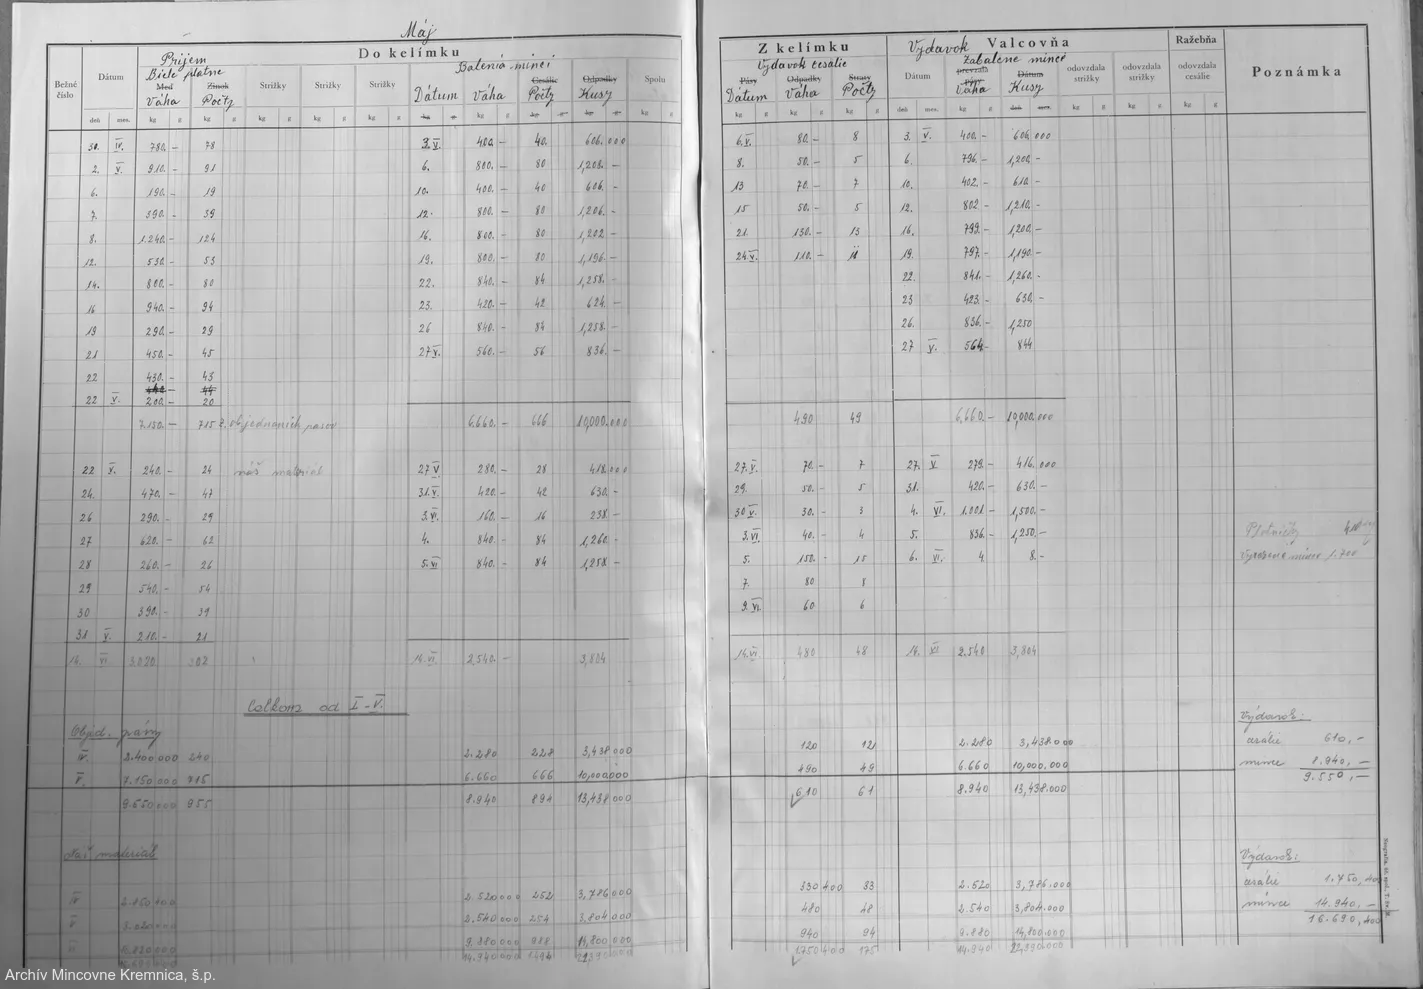 Máj
Do kelímku
Bežné číslo
Dátum
deň mes.
Príjem
Biele platne
Med Zinok
Váha Počty
kg g kg g
Strižky Strižky Strižky
kg g kg g kg g
Balenia mincí
Cesálie Odpadky
Dátum Váha Počty Kusy
Spolu
kg g
30. IV. 780.- 78 3. V. 400.- 40. 606.000
2. V. 910.- 91 6. 800.- 80 1,208.-
6. 190.- 19 10. 400.- 40 606.-
7. 390.- 39 12. 800.- 80 1,206.-
8. 1.240.- 124 16. 800.- 80 1,202.-
12. 530.- 53 19. 800.- 80 1,196.-
14. 800.- 80 22. 840.- 84 1,258.-
16 940.- 94 23. 420.- 42 624.-
19 290.- 29 26 840.- 84 1,258.-
21 450.- 45 27 V. 560.- 56 836.-
22 430.- 43
22 V. 200.- 20
7.150.- 715 z objednaních pasov 6.660.- 666 10,000.000
22 V. 240.- 24 náš materiál 27 V 280.- 28 418.000
24. 470.- 47 31. V. 420.- 42 630.-
26 290.- 29 3. VI. 160.- 16 238.-
27 620.- 62 4. 840.- 84 1,260.-
28 260.- 26 5. VI 840.- 84 1,258.-
29 540.- 54
30 390.- 39
31 V. 210.- 21
14. VI 3.020 302 14. VI. 2.540.- 3,804
Celkom od I-V.
Objed. pásy
IV. 2.400.000 240 2.280 228 3,438.000
V. 7.150.000 715 6.660 666 10,000.000
9.550.000 955 8.940 894 13,438.000
Náš materiál
IV 2.520.000 252 3,786.000
V 3.020.000 2.540.000 254 3,804.000
9.880.000 988 14,800.000
14.940.000 1494
Z kelímku
Výdavok cesálie
Pásy Odpadky Straty
Dátum Váha Počty
kg g kg g kg g
Výdavok
Valcovňa
Zabalené mince
Dátum
deň mes.
prevzala pásy
Váha Kusy
kg g
odovzdala strižky
kg g
odovzdala strižky
kg g
Ražebňa
odovzdala cesálie
kg g
Poznámka
6. V. 80.- 8 3. V. 400.- 606.000
8. 50.- 5 6. 796.- 1,200.-
13 70.- 7 10. 402.- 610.-
15 50.- 5 12. 802- 1,210.-
21. 130.- 13 16. 799.- 1,200.-
24. V. 110.- 11 19. 797.- 1,190.-
22. 841.- 1,260.-
23 423.- 630.-
26. 836.- 1,250
27 V. 564- 844
490 49 6,660.- 10,000.000
27. V. 70.- 7 27. V 279.- 416.000
29. 50.- 5 31. 420.- 630.-
30 V. 30.- 3 4. VI. 1.001.- 1,500.-
3. VI. 40.- 4 5. 836.- 1,250.-
5. 150.- 15 6. VI. 4. 8.-
7. 80 8
9. VI. 60 6
14. VI. 480 48 14. VI 2.540 3,804
Výdavok:
120 12 2.280 3,438.000 cesálie 610,-
490 49 6.660 10,000.000 mince 8.940,-
9.550,-
610 61 8.940 13,438.000
Výdavok:
330400 33 2.520 3,786.000 cesálie 1.750,400
480 48 2.540 3,804.000 mince 14.940,-
16.690,400
940 94 9.880 14,800.000
1750400 175 14.940
Archív Mincovne Kremnica, š.p.